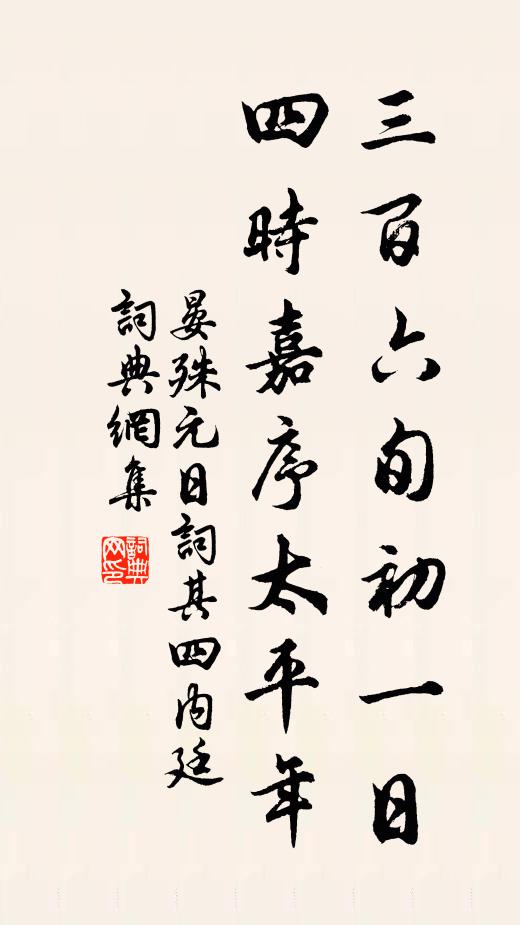 三百六旬初一日
四時嘉序太平年
晏殊元日詞其四內廷
詞典網集
詞典網印